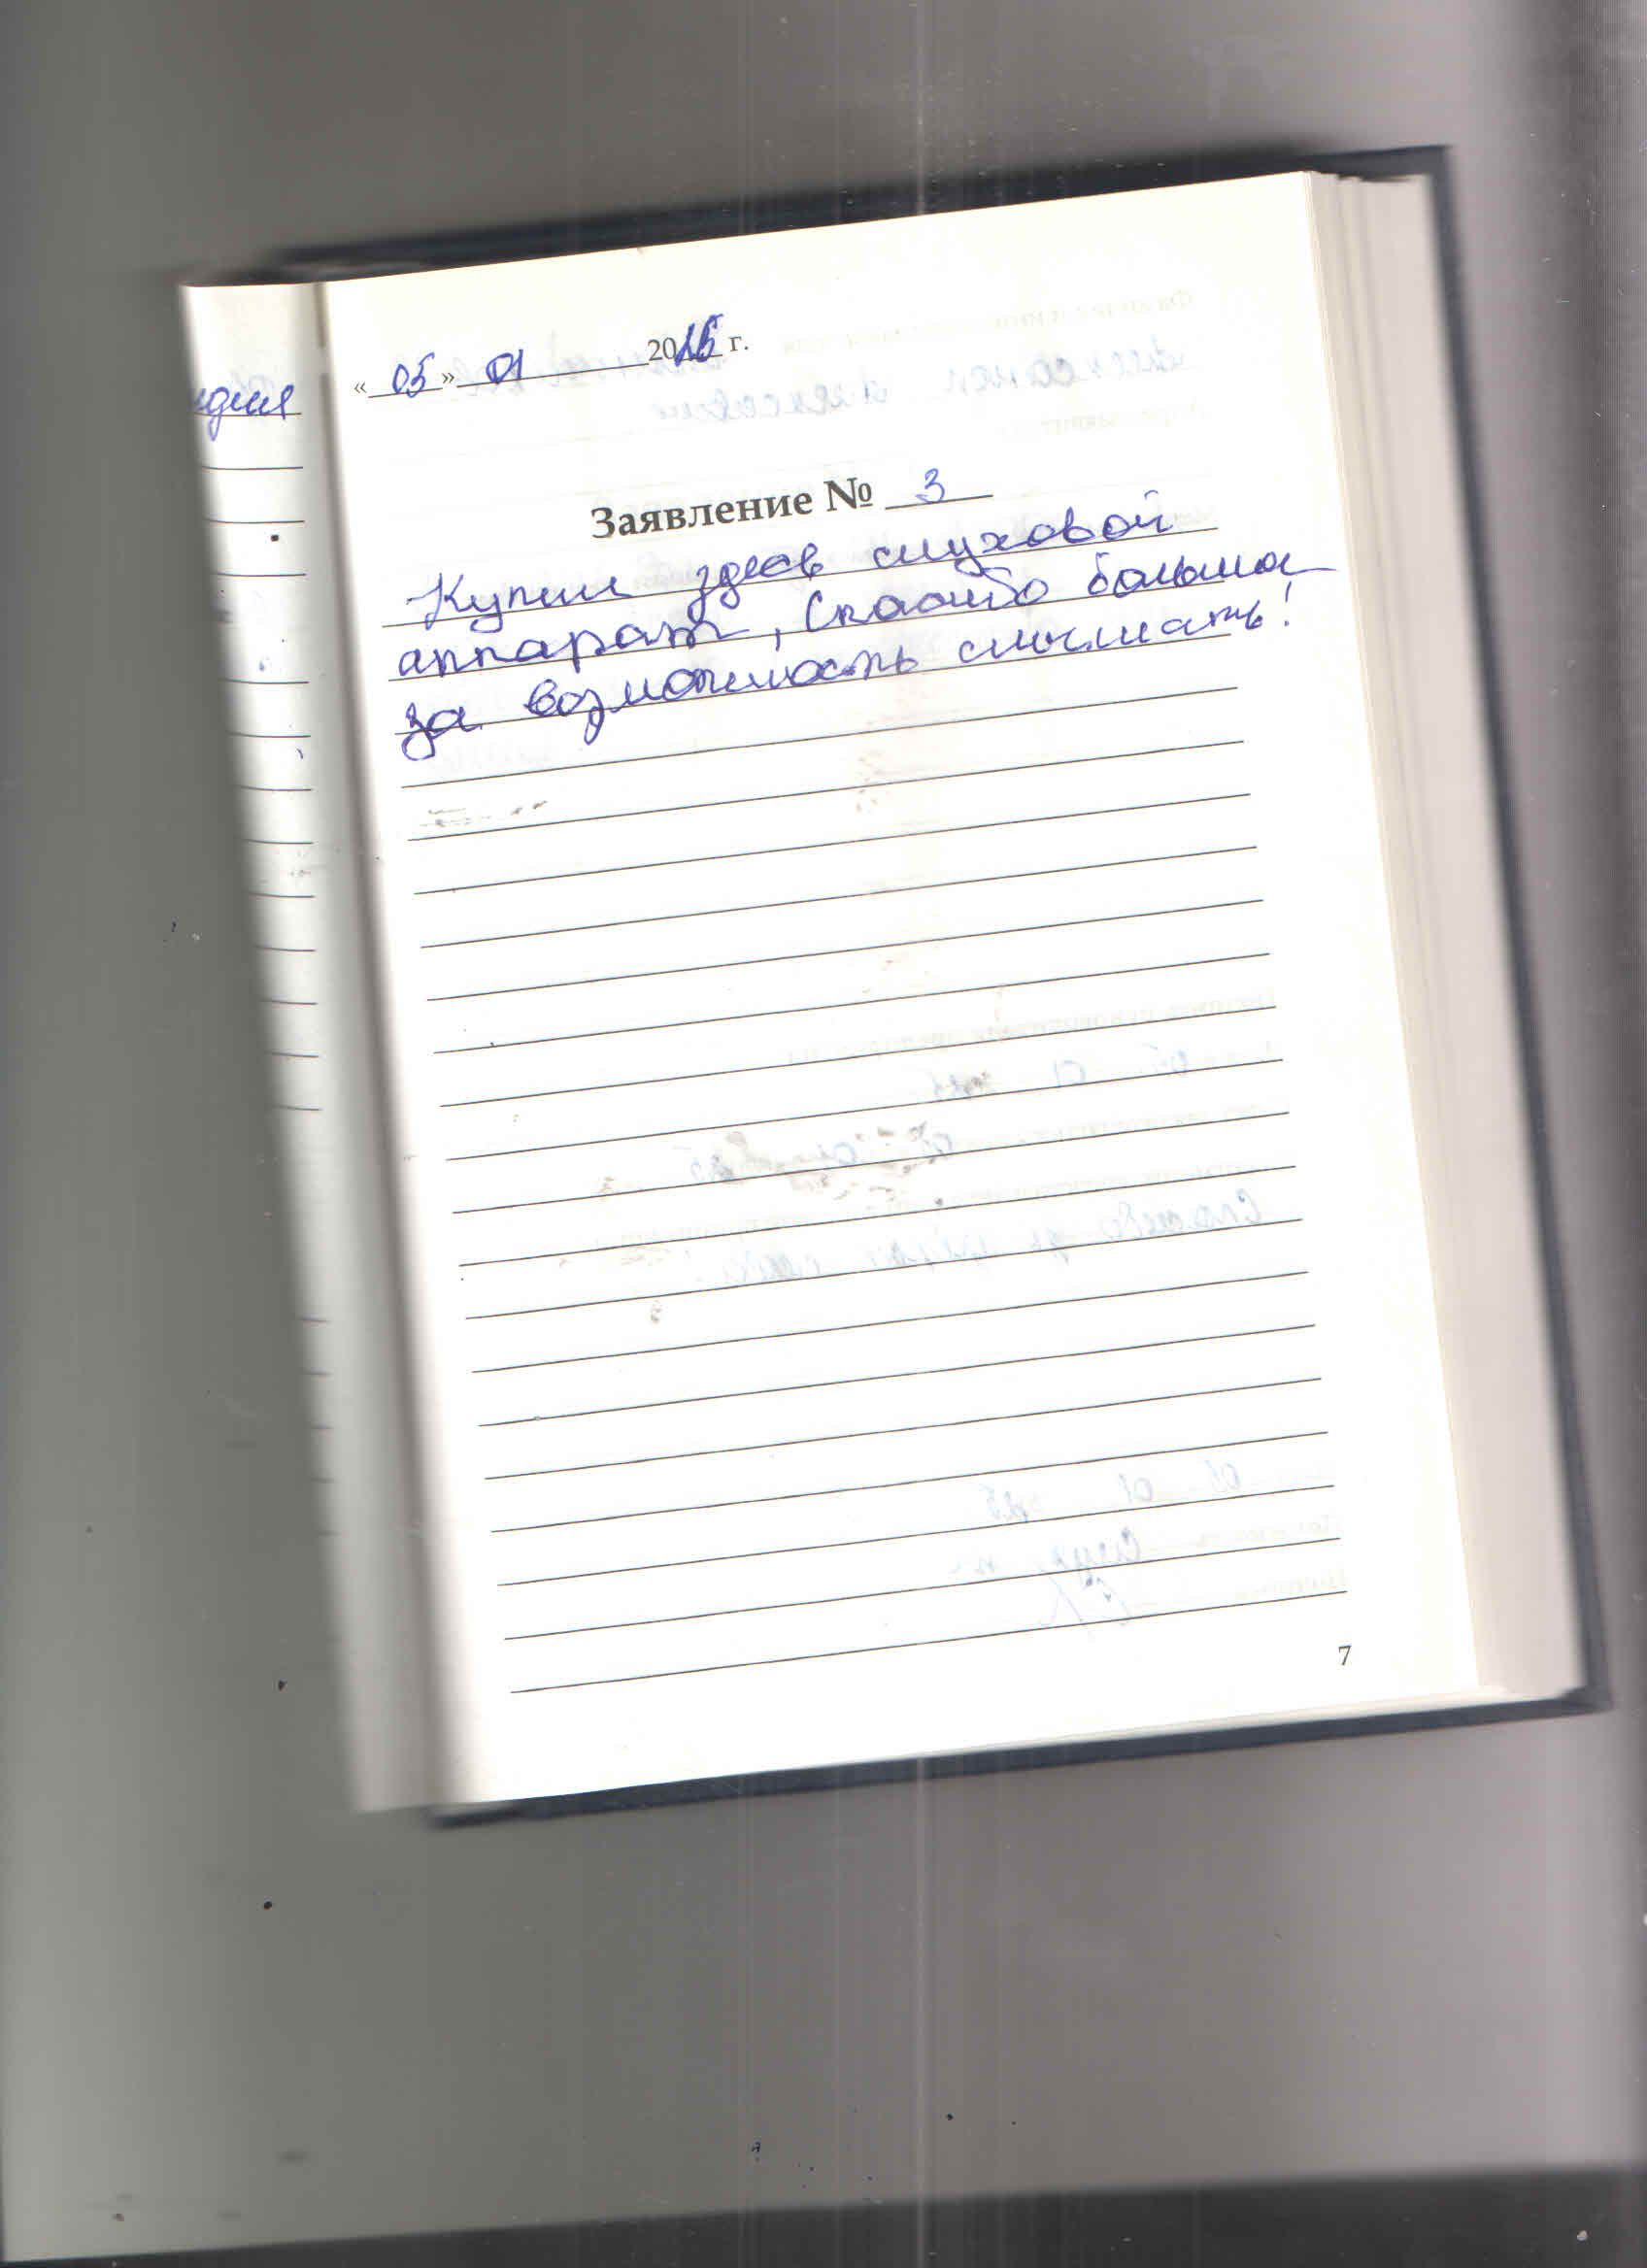 « 05 » 01 2025 г.
Заявление № 3
Купил здесь слуховой
аппарат, Спасибо большое
за возможность слышать!
7